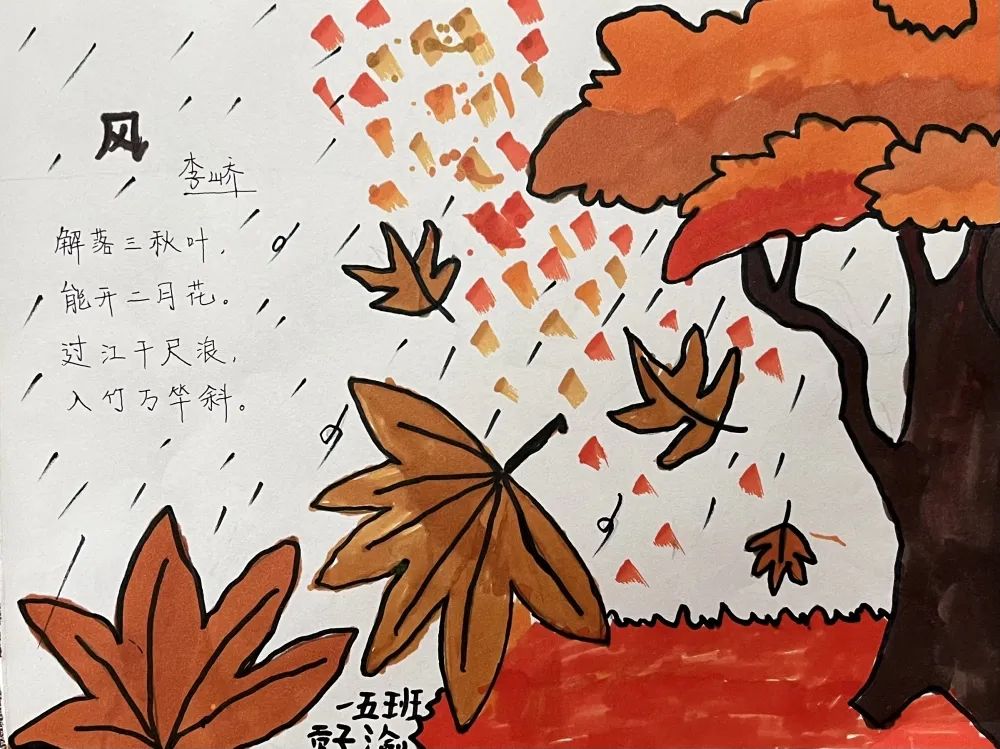 风
李峤
解落三秋叶，
能开二月花。
过江千尺浪，
入竹万竿斜。
一五班
子渝